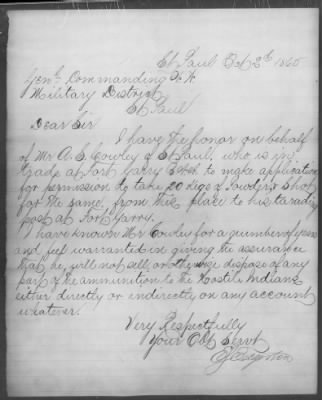 St Paul Oct 2th 1865
Genl. Commanding N. W
Military District
St Paul
Dear Sir
I have the honor on behalf
of Mr A. E. Cowley of St Paul, who is in
trade at Fort Garry to make application
for permission to take 20 kegs of Powder & Shot
for the same, from this place to his trading
post at Fort Garry.
I have known Mr Cowley for a number of years
and feel warranted in giving the assurance
that he will not sell or otherwise dispose of any
part of the ammunition to the Hostile Indians
either directly or indirectly on any account
whatever.
Very Respectfully
Your Obt Servt